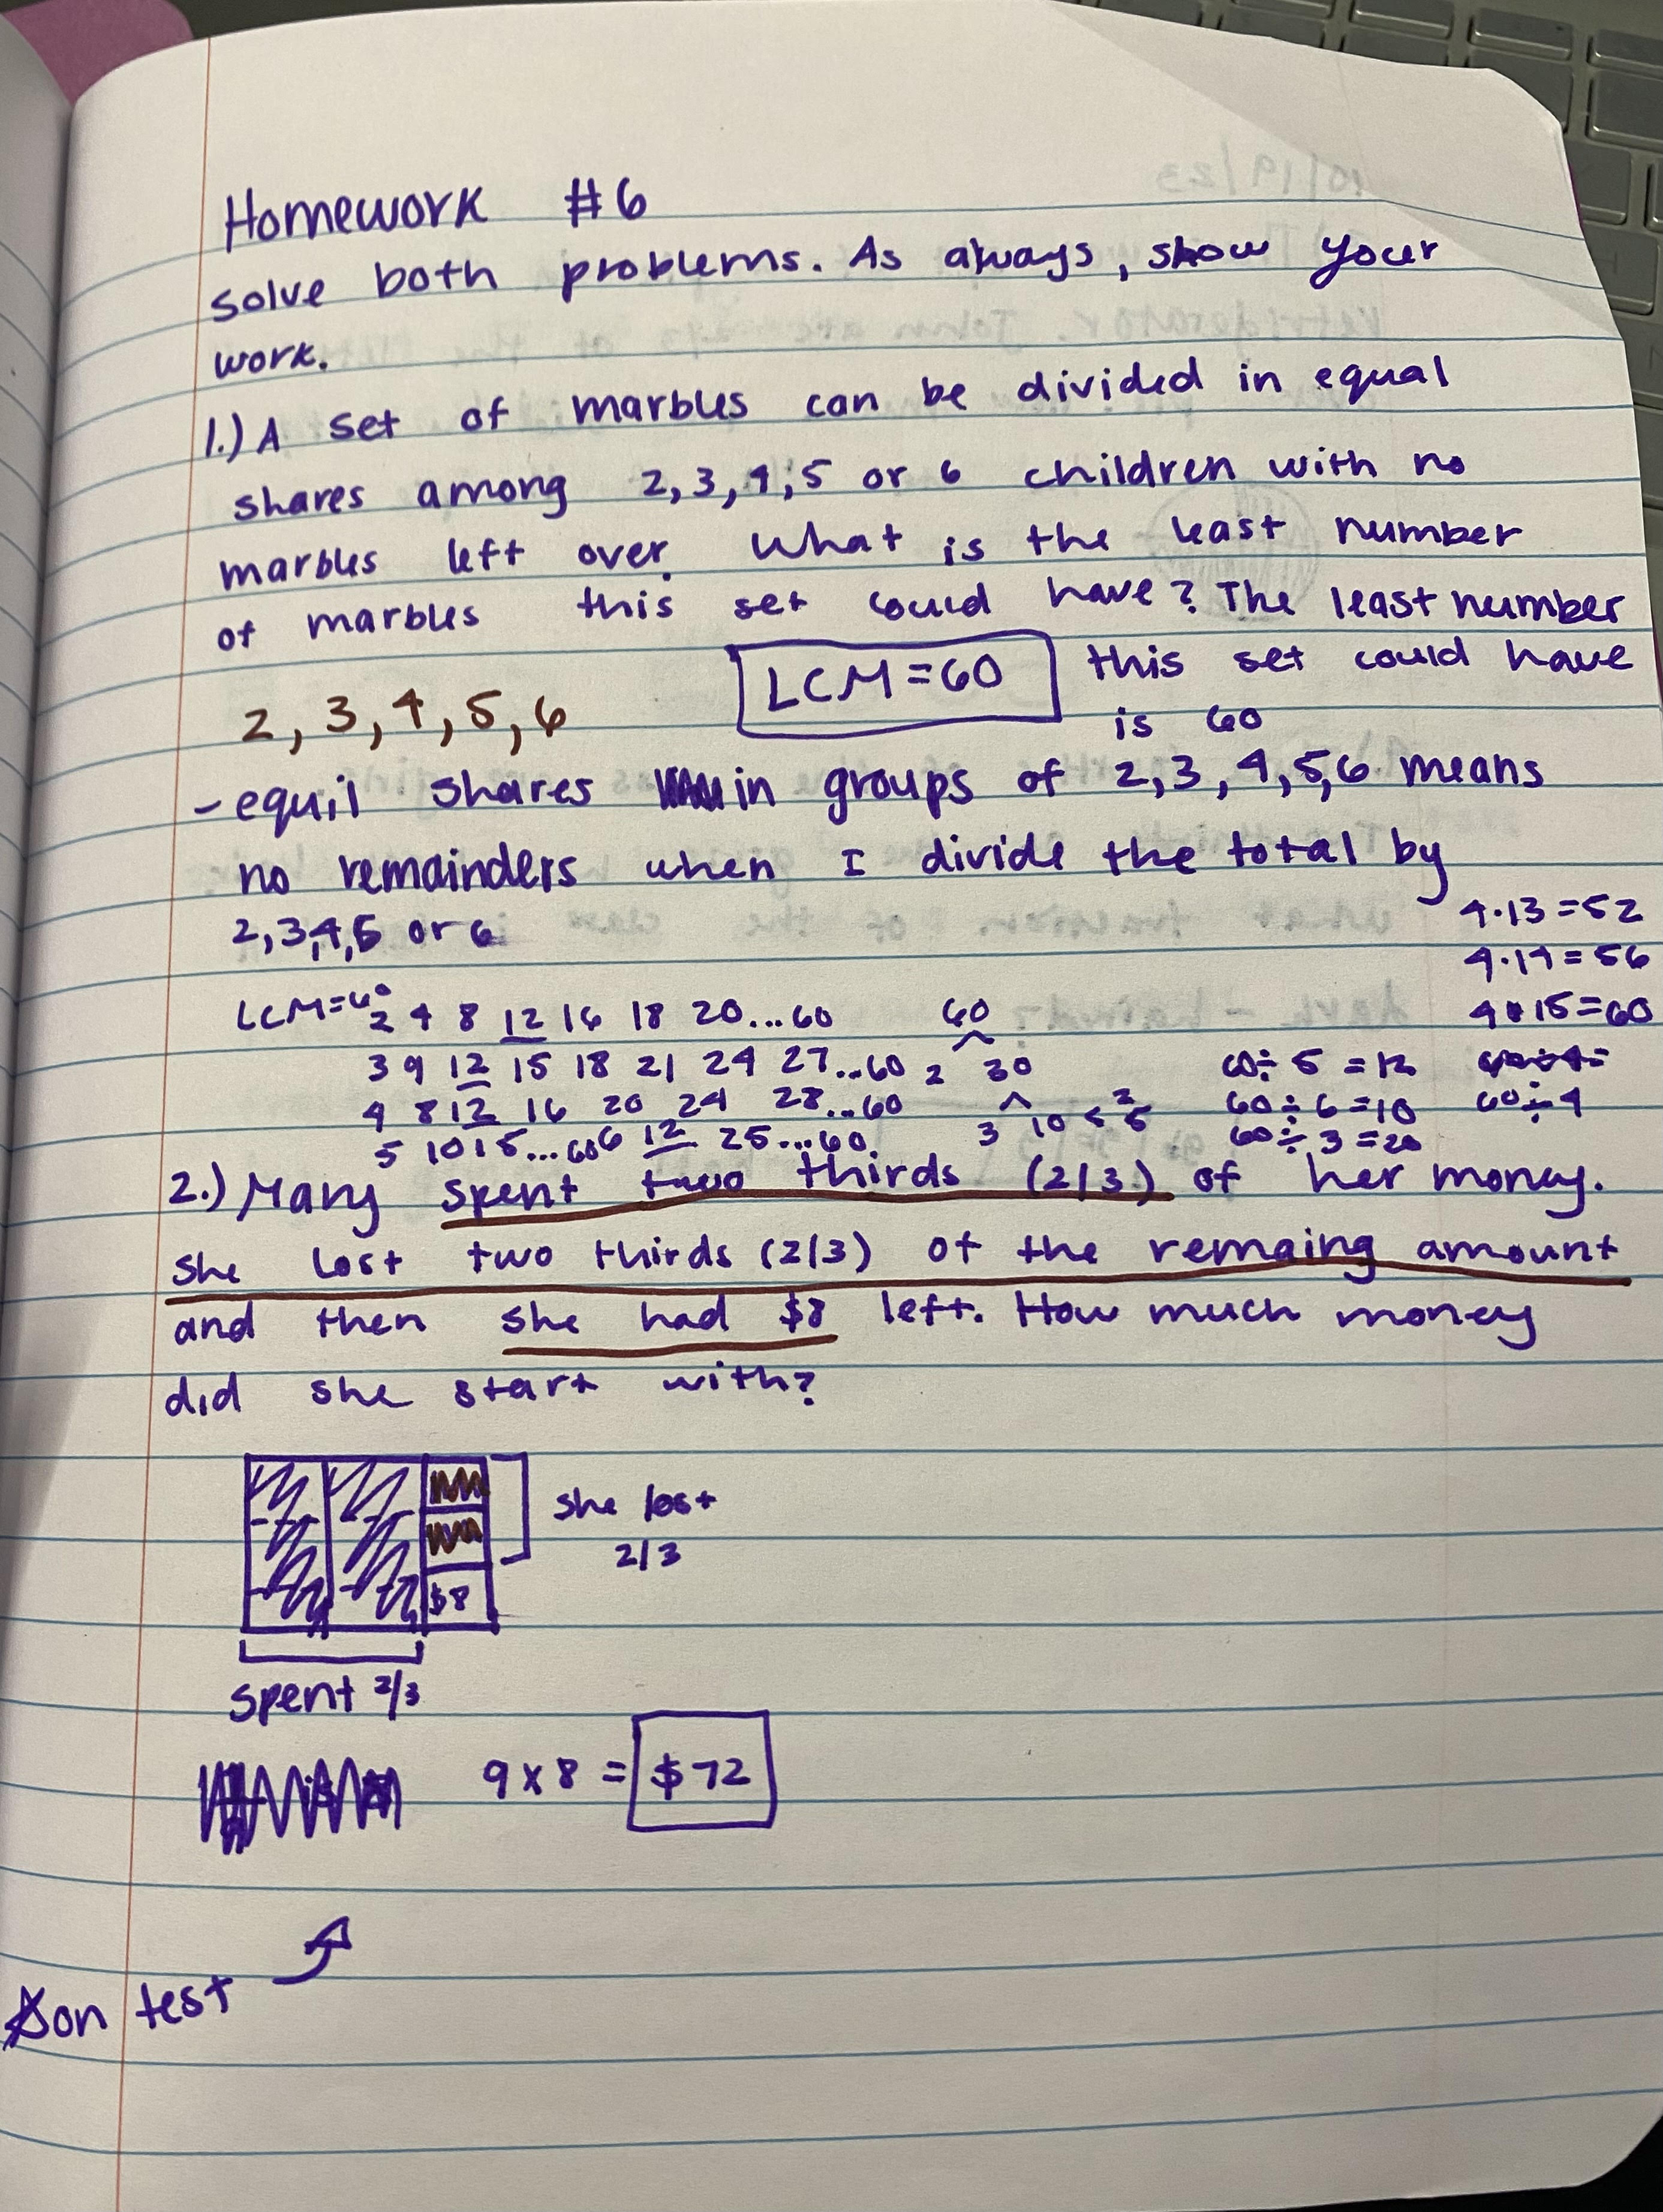 Homework #6
solve both problems. As always, show your
work.
1.) A set of marbles can be divided in equal
shares among 2,3,4,5 or 6 children with no
marbles left over. What is the least number
of marbles this set could have? The least number
LCM=60 this set could have
is 60
2, 3, 4, 5, 6
- equil shares in groups of 2,3,4,5,6 means
no remainders when I divide the total by
2,3,4,5 or 6
4·13=52
4·14=56
4·15=60
LCM=60
2 4 8 12 16 18 20...60
3 9 12 15 18 21 24 27...60
4 8 12 16 20 24 28...60
5 10 15...60 6 12 25...60
60
2 30
3 10 < 2 5
60÷5=12
60÷6=10 60÷4
60÷3=20
2.) Mary spent two thirds (2/3) of her money.
she lost two thirds (2/3) of the remaing amount
and then she had $8 left. How much money
did she start with?
she lost
2/3
$8
spent 2/3
9 x 8 = $72
on test